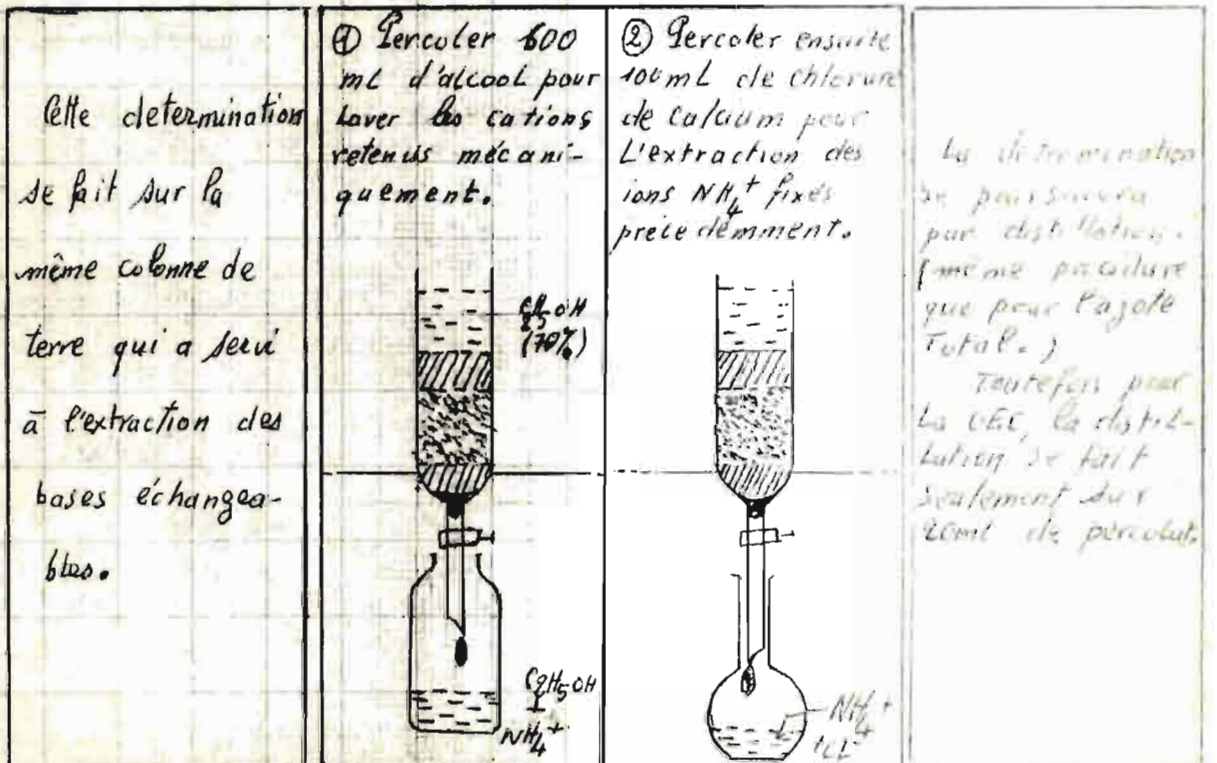 Cette determination
se fait sur la
même colonne de
terre qui a servi
à l'extraction des
bases échangea-
bles.
① Percoler 600
mL d'alcool pour
Laver les cations
retenus mécani-
quement.
C2H5OH
(70%)
C2H5OH
+
NH4+
② Percoler ensuite
100mL de chlorure
de Calcium pour
L'extraction des
ions NH4+ fixés
precedemment.
NH4+
+Cl-
La determination
se poursuivra
par distillation.
(même procedure
que pour l'azote
Total.)
Toutefois pour
La CEC, la distil-
lation se fait
seulement sur
20ml de percolat.